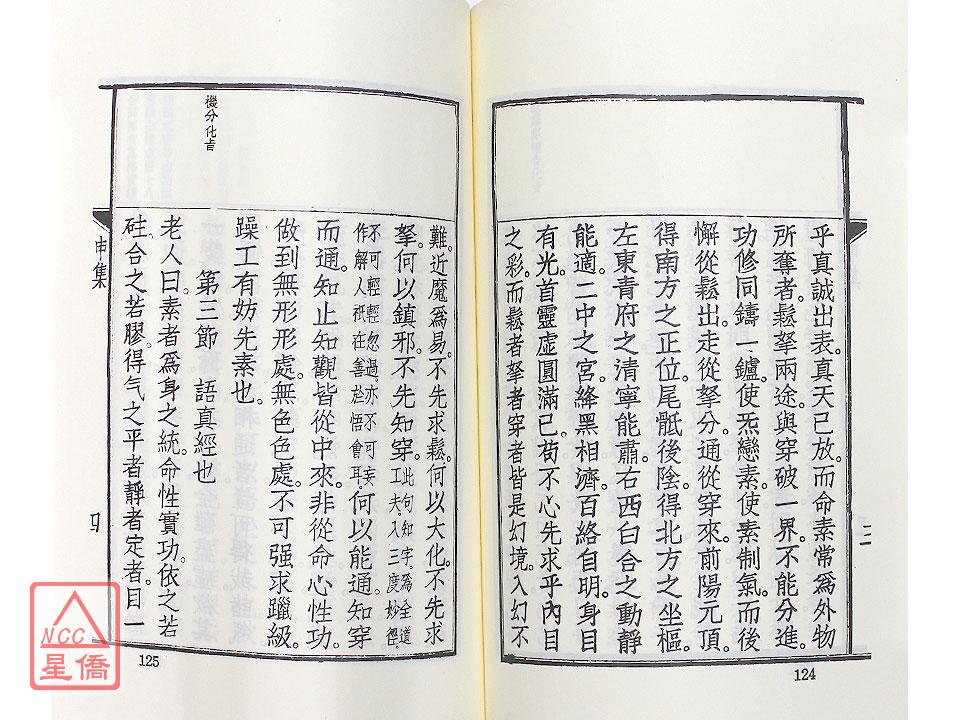 乎真誠出表。真天已放。而命素常爲外物
所奪者。鬆拏兩途。與穿破一界。不能分進。
功修同鑄一鑪。使炁戀素。使素制氣。而後
懈從鬆出。走從拏分。通從穿來。前陽元頂。
得南方之正位。尾骶後陰。得北方之坐樞。
左東青府之清寧能肅。右西白合之動靜
能適。二中之宮。絳黑相濟。百絡自明。身目
有光。首靈虛圓滿已。苟不心先求乎內目
之彩。而鬆者拏者穿者皆是幻境。入幻不
三
124
機分化旨
難。近魔爲易。不先求鬆。何以大化。不先求
拏。何以鎮邪。不先知穿。此句知字。爲全道工夫入三度妙徑。
不可輕輕忽過。亦不可妄作解人。祇在善悲悟會耳。何以能通。知穿
而通。知止知觀皆從中來。非從命心性功。
做到無形形處。無色色處。不可强求躐級。
躁工有妨先素也。
第三節 語真經也
老人曰。素者爲身之統。命性實功。依之若
硅。合之若膠。得气之平者靜者定者。目一
申集
四
125
NCC
星僑